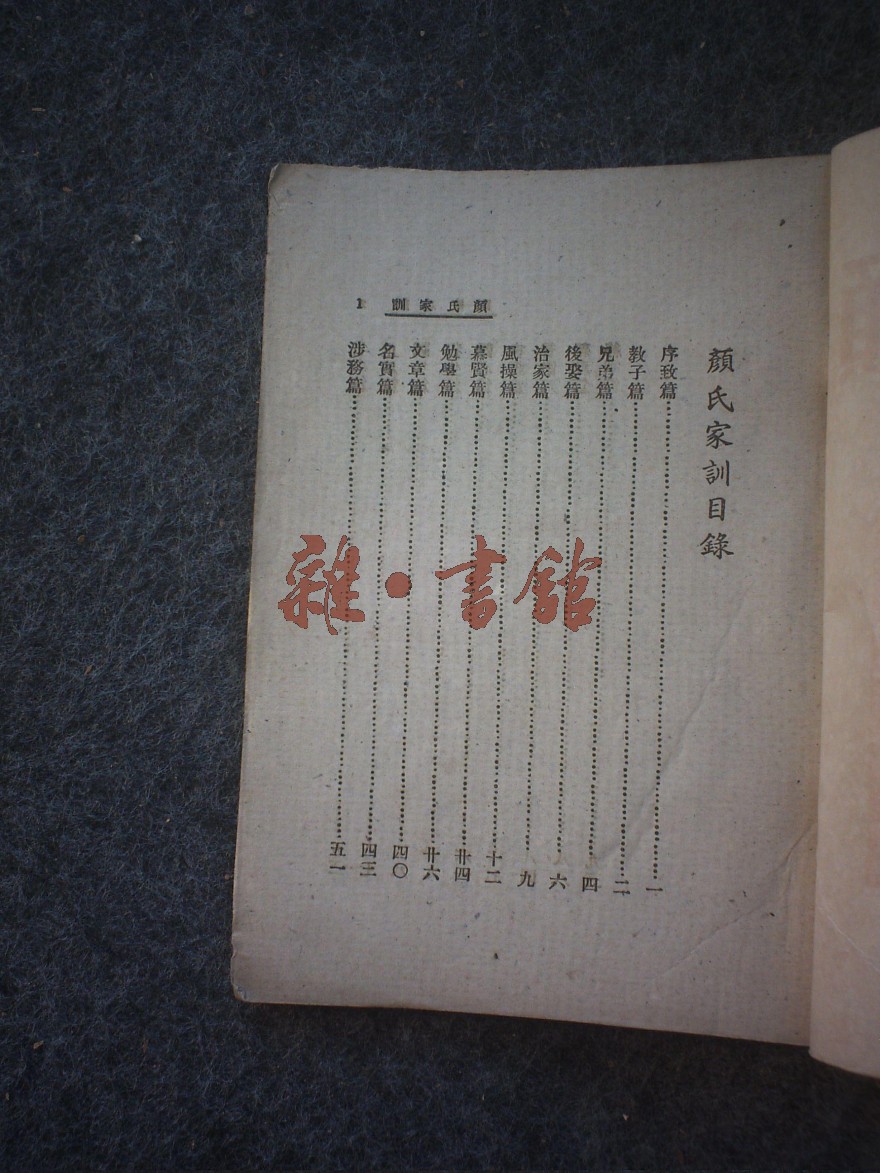 顏氏家訓目錄
序致篇……一
敎子篇……二
兄弟篇……四
後娶篇……六
治家篇……九
風操篇……十二
慕賢篇……廿四
勉學篇……廿六
文章篇……四〇
名實篇……四三
涉務篇……五一
顏氏家訓 1
雜·書館